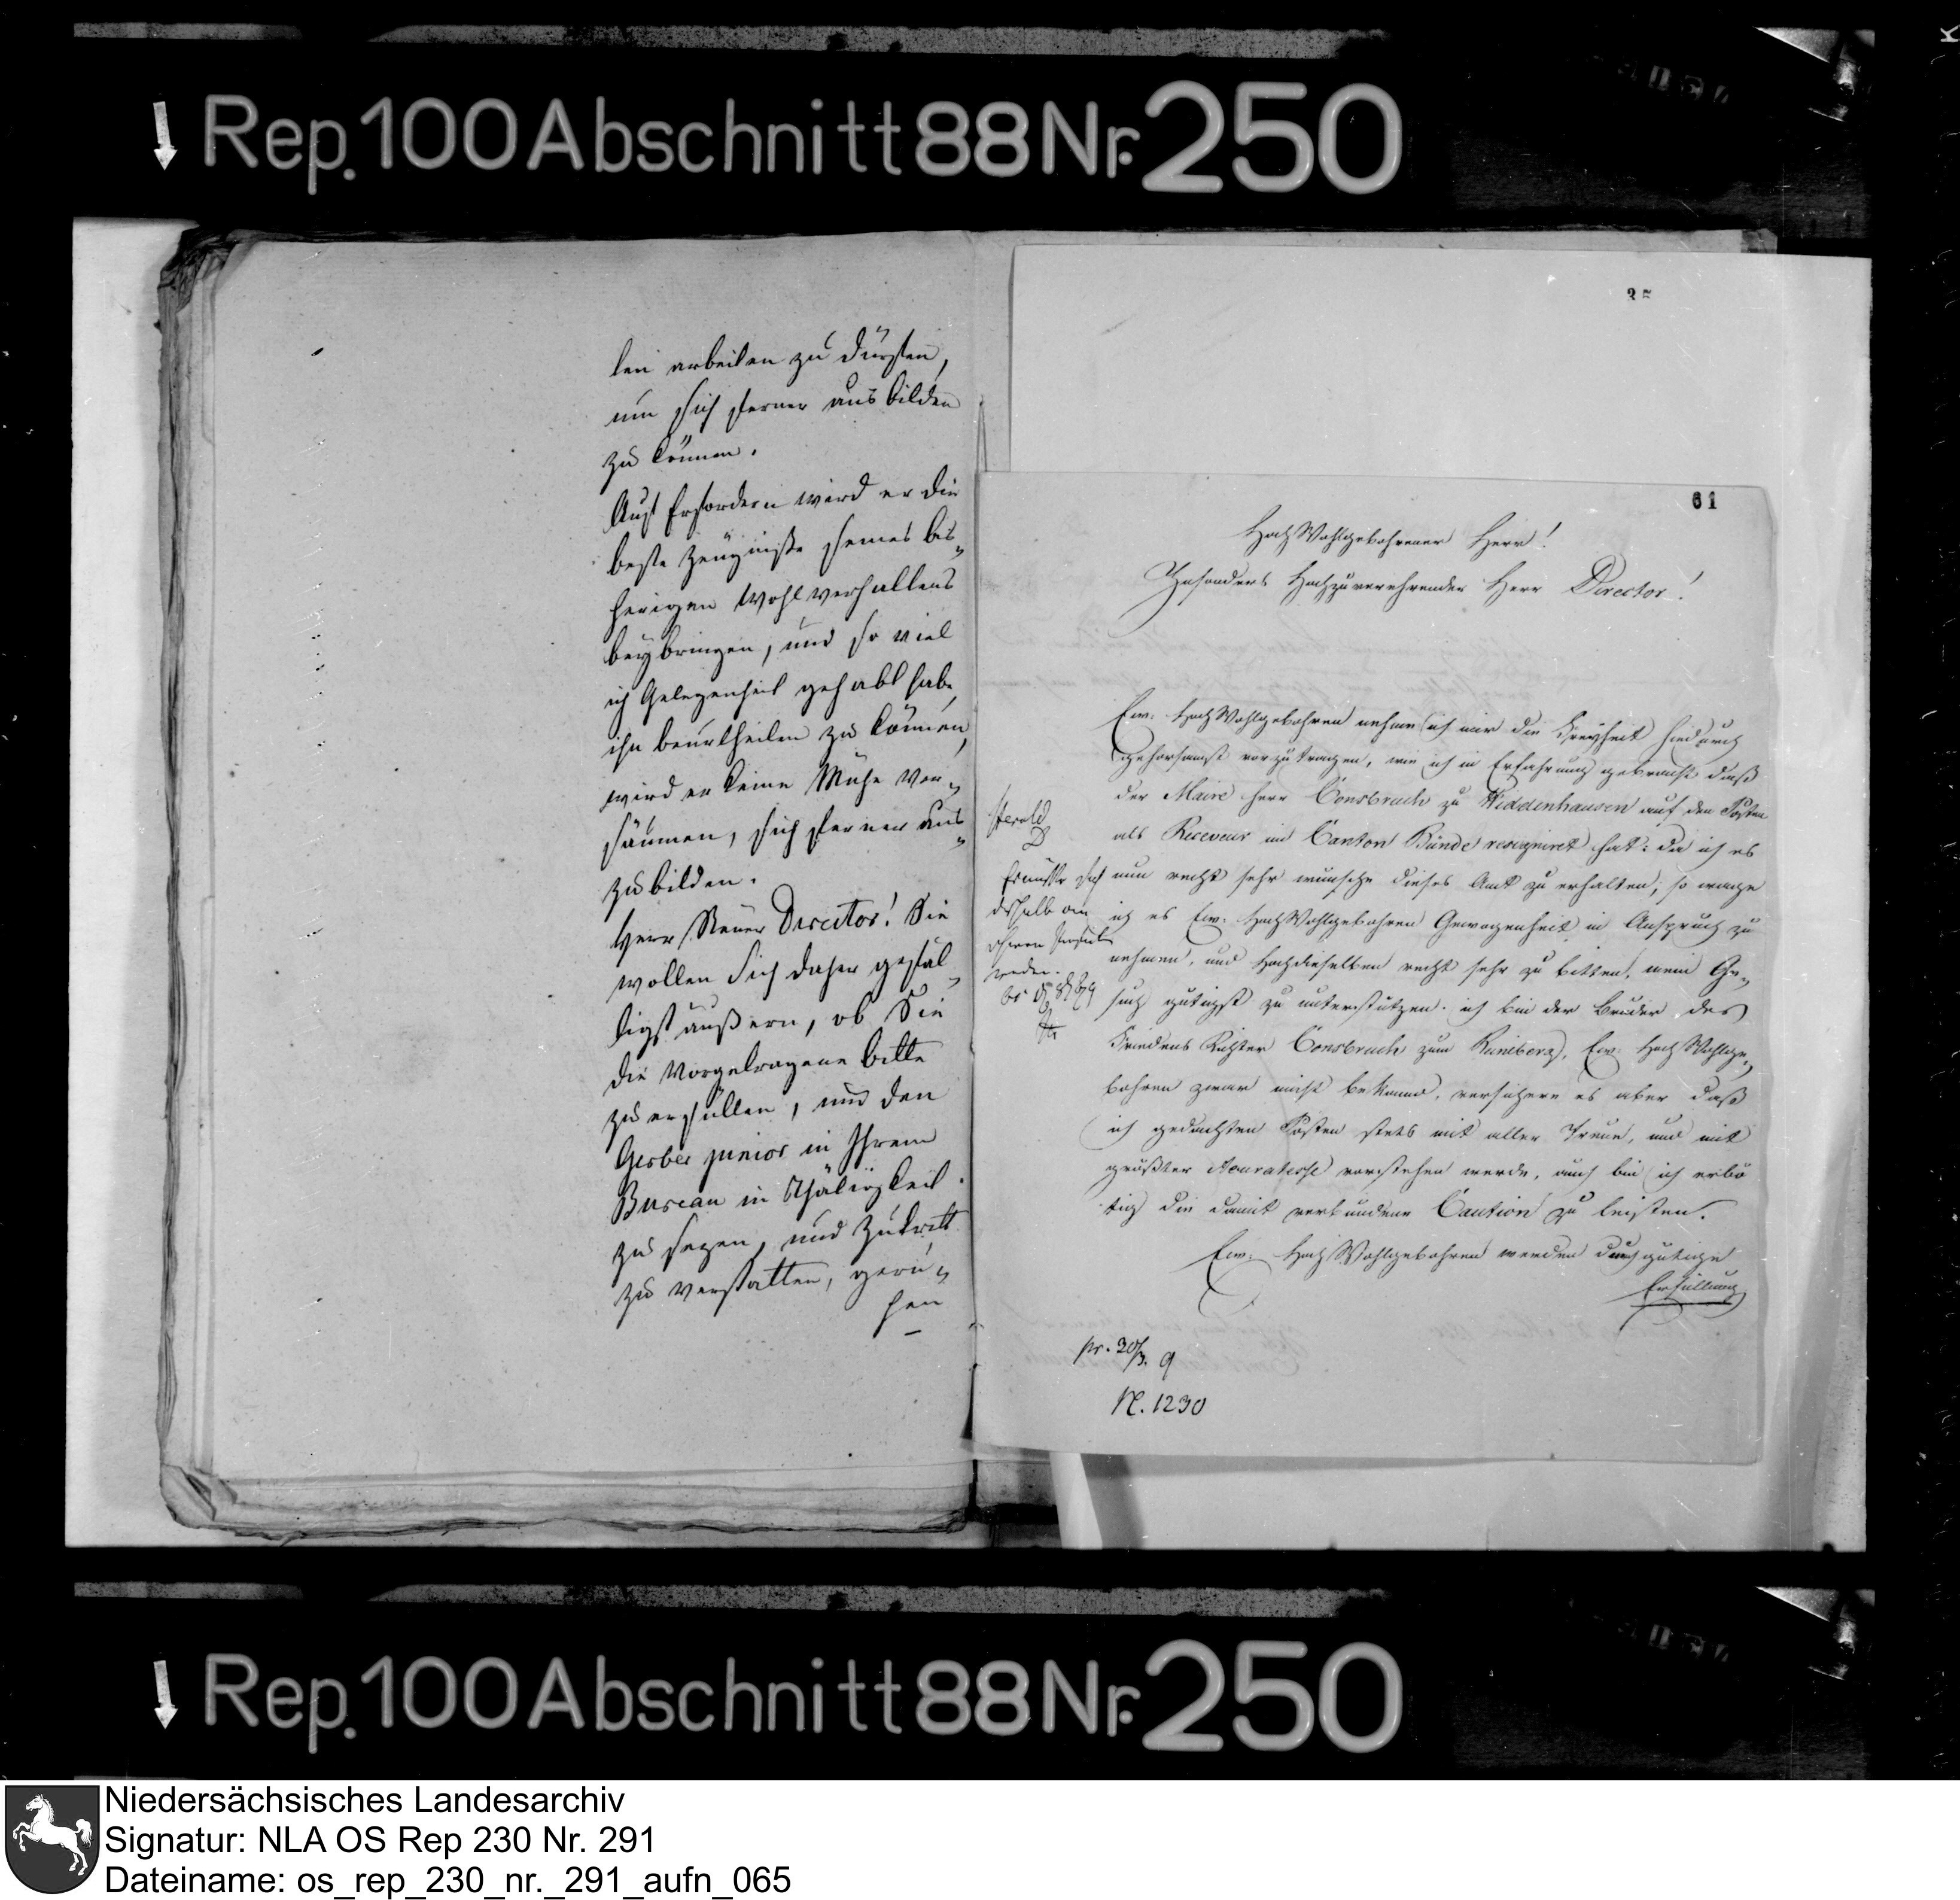 Rep. 100 Abschnitt 88 Nr. 250
lei arbeiten zu dürfen,
um sich ferner ausbilden
zu können.
Auf Erfordern wird er die
beste Zeugniße seines bis„
herigen Wohlverhaltens
beybringen, und so viel
ich Gelegenheit gehabt habe,
ihn beurtheilen zu können,
wird er keine Mühe ver„
säumen, sich ferner aus„
zubilden.
Herr Steuer Director! Sie
wollen Sich daher gefäl„
ligst äußern, ob Sie
die vorgetragene bitte
zu erfüllen, und den
Gerber junior in Ihrem
Bureau in Thätigkeit
zu sezen, und Zutritt
zu verstatten, geru„
hen
35
61
HochWohlgebohrener Herr!
Besonders Hochzuverehrender Herr Director!
Ew: HochWohlgebohren nehme ich mir die Freyheit hiedurch
gehorsamst vorzutragen, wie ich in Erfahrung gebracht daß
der Maire Herr Consbruch zu Hiddenhausen auf den Posten
als Receveur im Canton Bünde resigniret hat: da ich es
nun recht sehr wünsche dieses Amt zu erhalten; so wage
ich es Ew: HochWohlgebohren Gewogenheit in Anspruch zu
nehmen, und Hochdieselben recht sehr zu bitten, mein Ge„
such gütigst zu unterstützen. ich bin der Bruder des
Friedens Richter Consbruch zum Kuhlberg, Ew: HochWohlge„
bohren zwar nicht bekannt, versichere es aber daß
ich gedachten Posten stets mit aller Treue, und mit
größter Accuratesse vorstehen werde, auch bin ich erbö
tig die damit verbundene Caution zu leisten.
Ew: HochWohlgebohren werden durch gütige
Erfüllung
deshalb an
werden.
pr. 30/3. 9
N. 1230
Rep. 100 Abschnitt 88 Nr. 250
Niedersächsisches Landesarchiv
Signatur: NLA OS Rep 230 Nr. 291
Dateiname: os_rep_230_nr._291_aufn_065